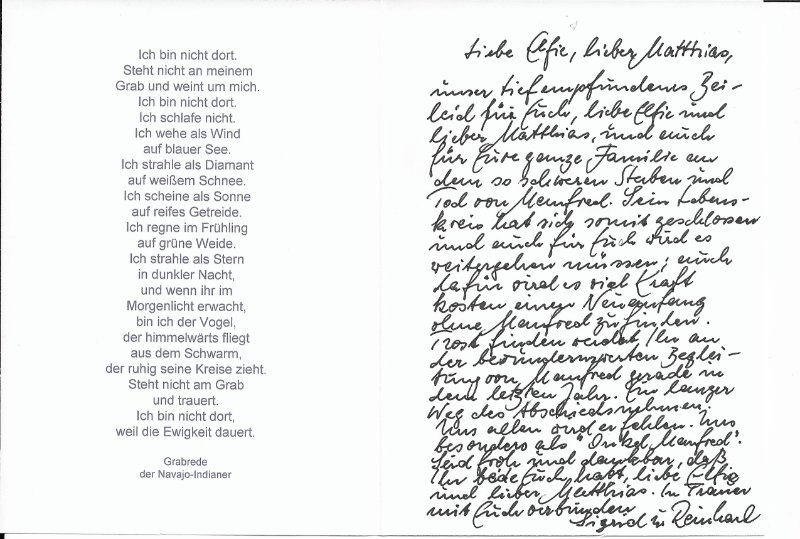 Ich bin nicht dort.
Steht nicht an meinem
Grab und weint um mich.
Ich bin nicht dort.
Ich schlafe nicht.
Ich wehe als Wind
auf blauer See.
Ich strahle als Diamant
auf weißem Schnee.
Ich scheine als Sonne
auf reifes Getreide.
Ich regne im Frühling
auf grüne Weide.
Ich strahle als Stern
in dunkler Nacht,
und wenn ihr im
Morgenlicht erwacht,
bin ich der Vogel,
der himmelwärts fliegt
aus dem Schwarm,
der ruhig seine Kreise zieht.
Steht nicht am Grab
und trauert.
Ich bin nicht dort,
weil die Ewigkeit dauert.
Grabrede
der Navajo-Indianer
Liebe Elfie, lieber Matthias,
unser tief empfundenes Bei-
leid für Euch, liebe Elfie und
lieber Matthias, und auch
für Eure ganze Familie an
dem so schweren Sterben und
Tod von Manfred. Sein Lebens-
kreis hat sich somit geschlossen
und auch für Euch wird es
weitergehen müssen; auch
dafür wird es viel Kraft
kosten einen Neuanfang
ohne Manfred zu finden.
Trost finden werdet Ihr an
der bewundernswerten Beglei-
tung von Manfred gerade in
dem letzten Jahr. Ein langer
Weg des Abschiednehmens.
Uns allen wird er fehlen. Uns
besonders als "Onkel Manfred".
Seid froh und dankbar, daß
Ihr beide Euch habt, liebe Elfie
und lieber Matthias. In Trauer
mit Euch verbunden
Sigrid u. Reinhard